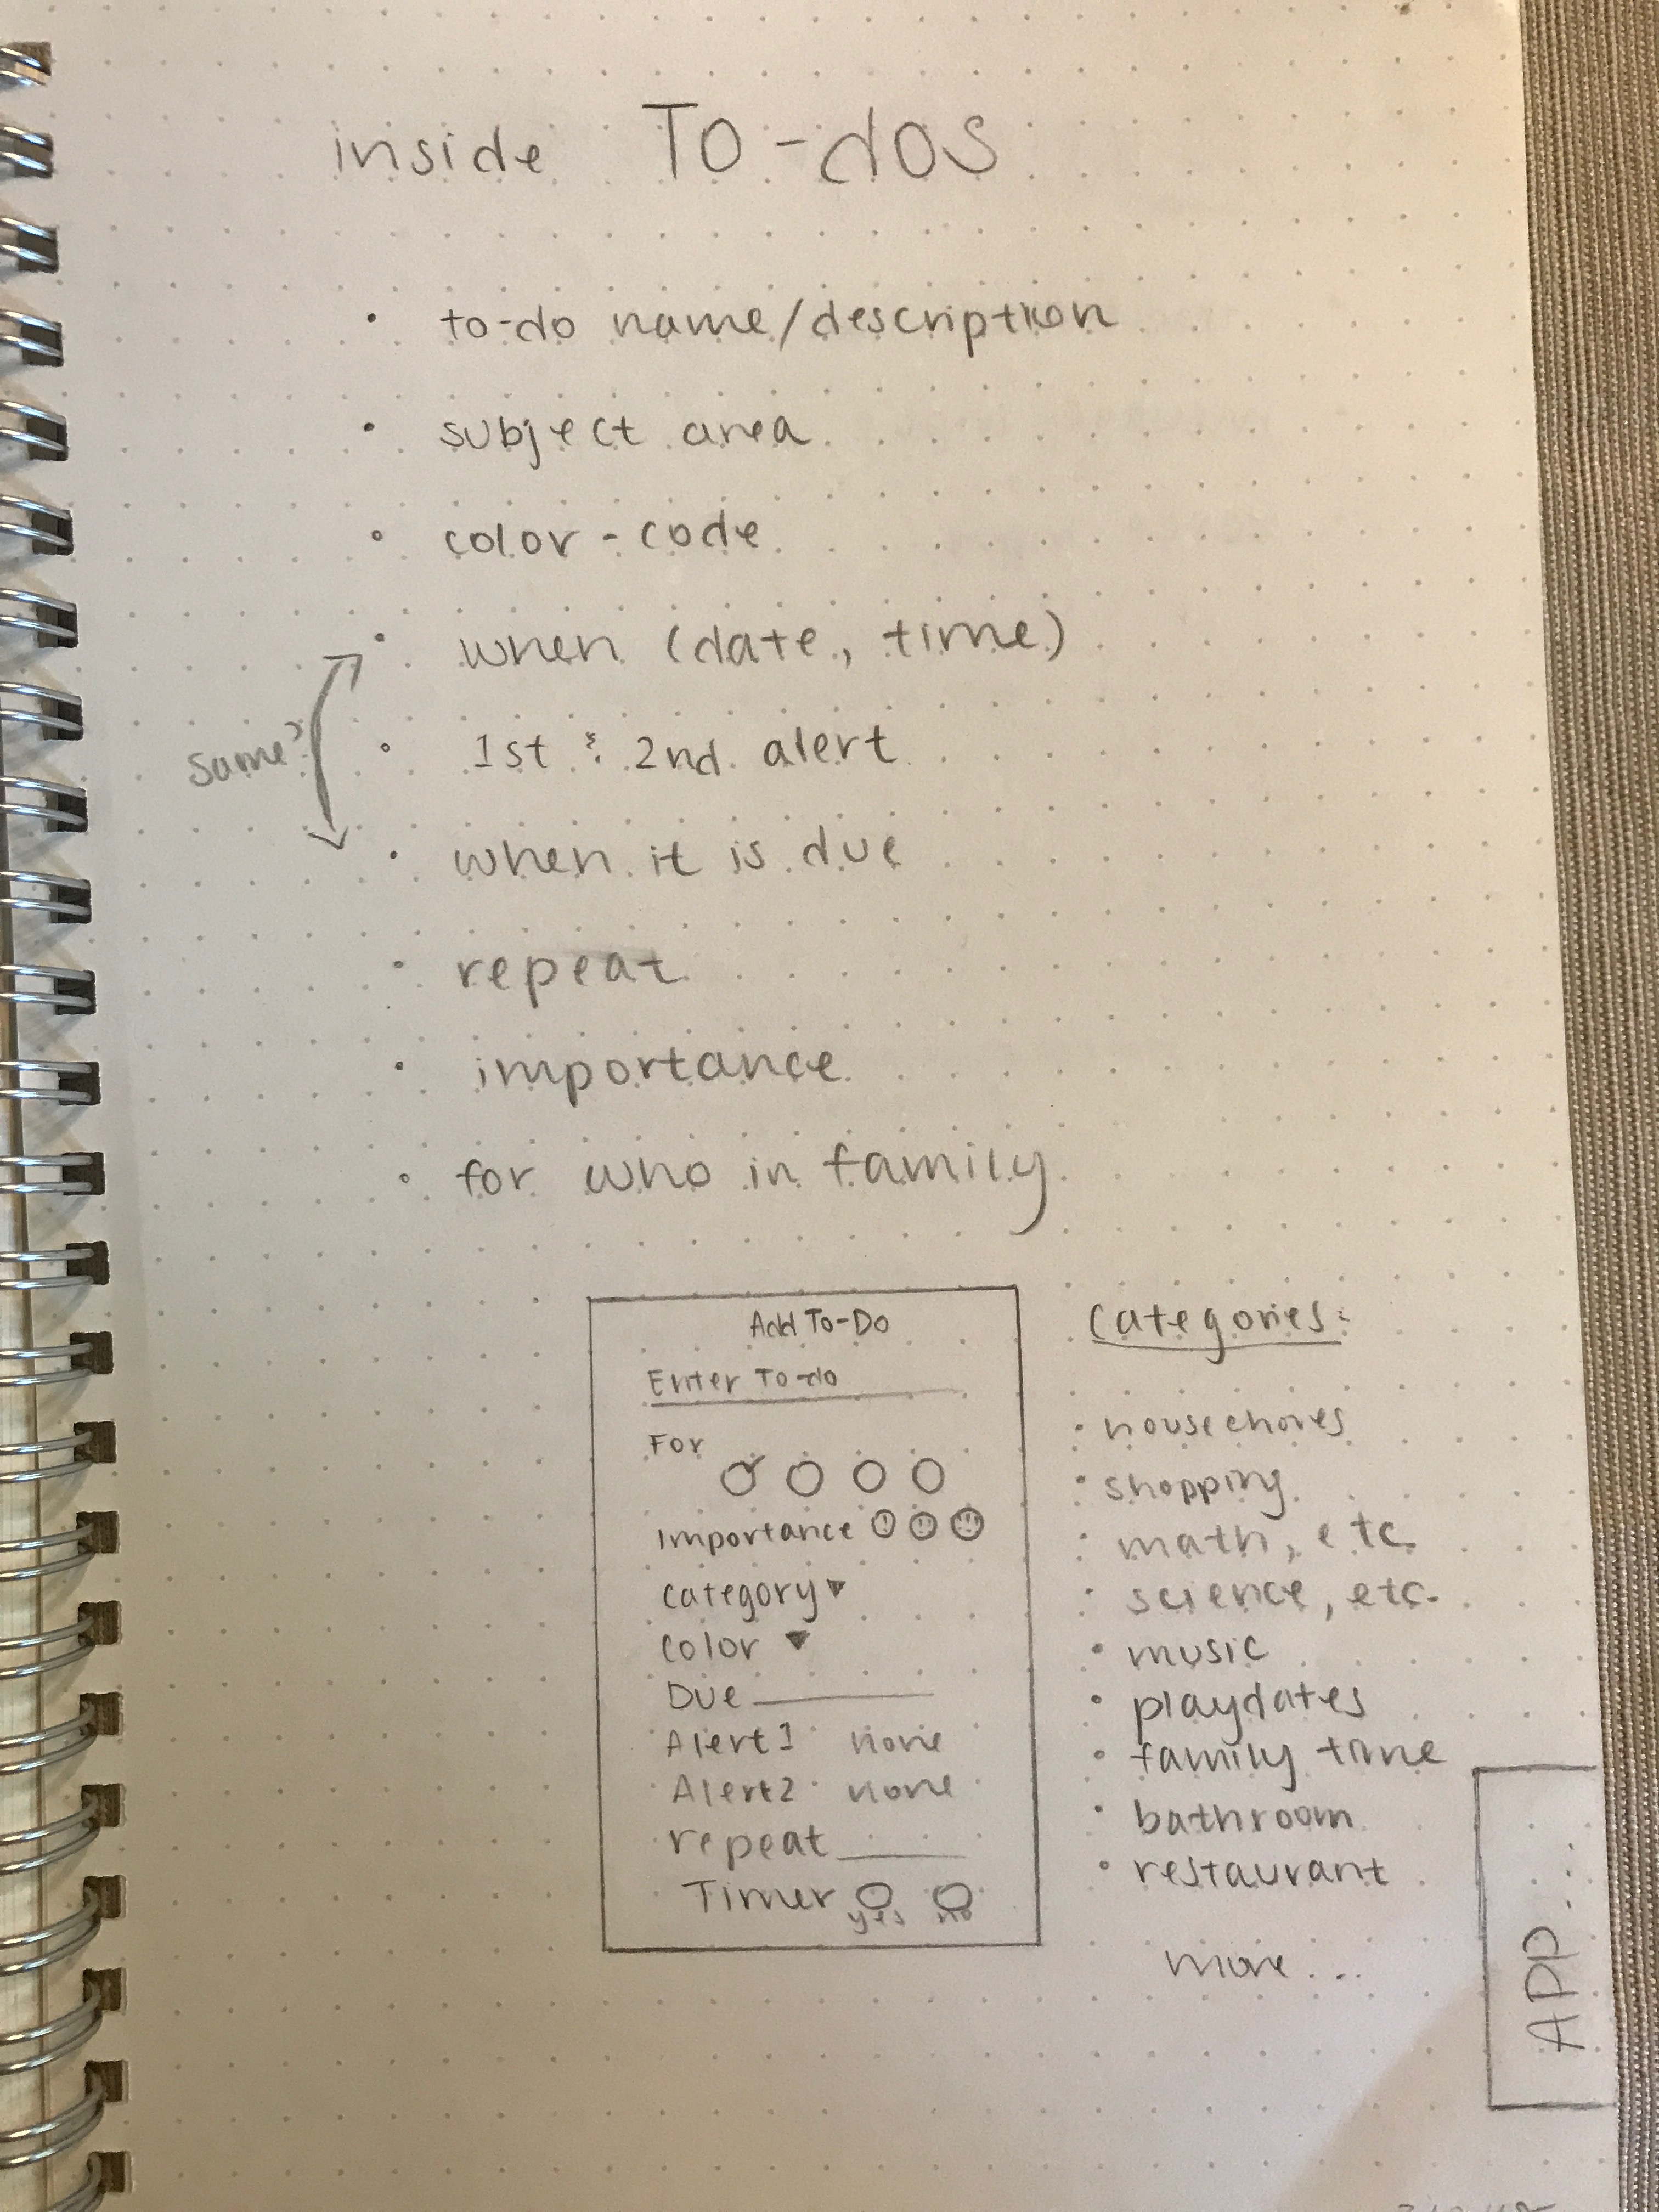 inside To-dos
• to-do name/description
• subject area
• color-code
• when (date, time)
same?
• 1st & 2nd alert
• when it is due
• repeat
• importance
• for who in family
Add To-Do
Enter To-do
For
Importance ! !! !!!
category ▼
color ▼
Due
Alert 1 none
Alert 2 none
repeat
Timer
yes no
Categories:
• housechores
• shopping
• math, etc.
• science, etc.
• music
• playdates
• family time
• bathroom
• restaurant
more...
APP...